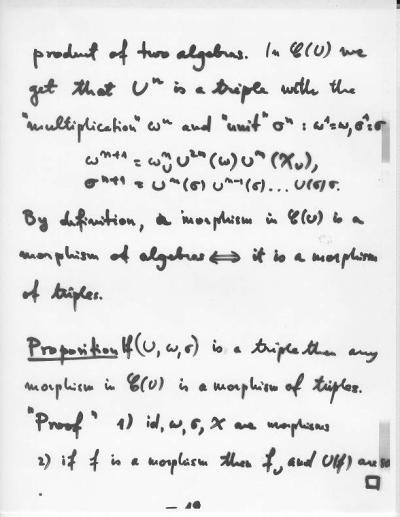 product of two algebras. In 𝒞(U) we
get that Uⁿ is a triple with the
"multiplication" ωⁿ and "unit" σⁿ : ω¹=ω, σ¹=σ
ωⁿ⁺¹ = ωⁿ_U U²ⁿ(ω) Uⁿ(χ_U),
σⁿ⁺¹ = Uⁿ(σ) Uⁿ⁻¹(σ)... U(σ)σ.
By definition, a morphism in 𝒞(U) is a
morphism of algebras ⟺ it is a morphism
of triples.
Proposition If (U, ω, σ) is a triple then any
morphism in 𝒞(U) is a morphism of triples.
"Proof" 1) id, ω, σ, χ are morphisms
2) if f is a morphism then f_U and U(f) are so
□
— 10